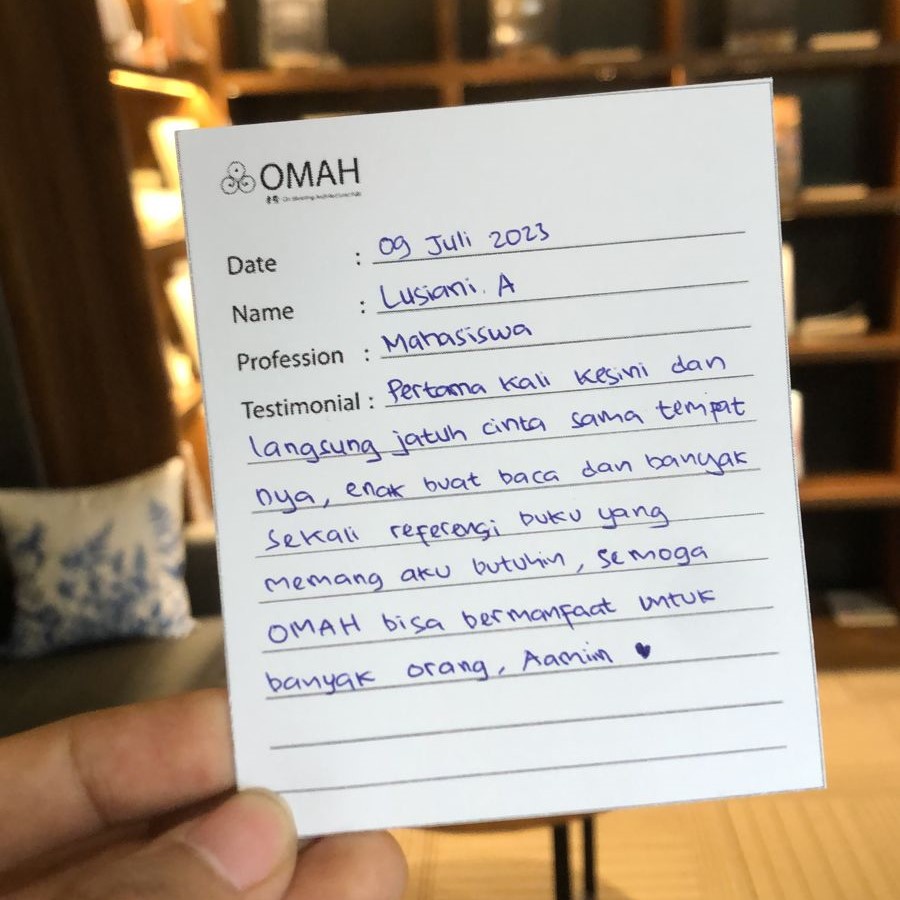 OMAH
Date : 09 Juli 2023
Name : Lusiani. A
Profession : Mahasiswa
Testimonial : Pertama kali kesini dan
langsung jatuh cinta sama tempat
nya, enak buat baca dan banyak
sekali referensi buku yang
memang aku butuhin, semoga
OMAH bisa bermanfaat untuk
banyak orang, Aamiin ♥